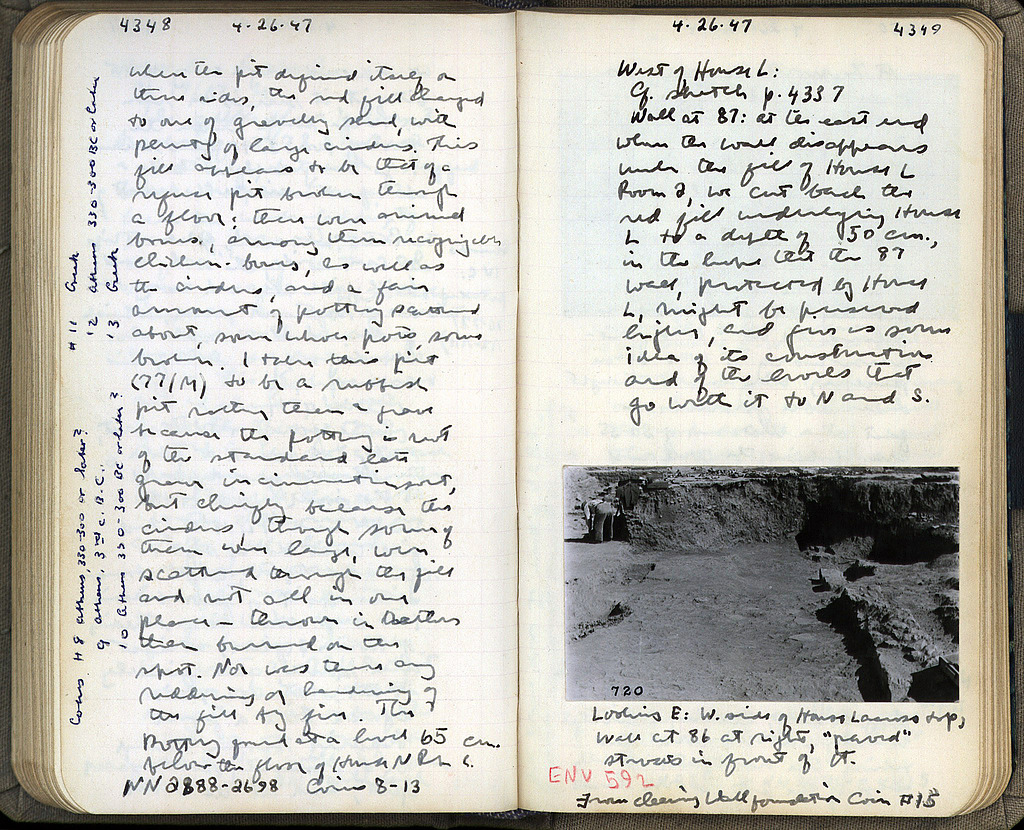 4348 4-26-47
when the pit defined itself on
three sides, the red fill changed
to one of gravelly sand, with
plenty of large cinders. This
fill appears to be that of a
refuse pit broken through
a floor; there were animal
bones, among them recognizable
chicken-bones, as well as
the cinders, and a fair
amount of pottery scattered
about, some whole pots, some
broken. I take this pit
(77/M) to be a rubbish
pit rather than a grave
because the pottery is not
of the standard late
grave incinerary sort,
but chiefly because the
cinders though some of
them were large, were
scattered through the fill
and not all in one
place — thrown in rather
than burned on the
spot. Nor was there any
reddening or hardening of
the fill by fire. The
pottery found at a level 65 cm.
below the floor of House N Rm
NN 2688-2698 Coins 8-13
Coins #8 Athens, 330-300 or later?
9 Athens, 3rd c. B.C.
10 Athens 330-300 BC or later?
#11 Greek
12 Athens 330-300 BC or later
13 Greek
4-26-47 4349
West of House L:
Cf. sketch p. 4337
Wall at 87: at the east end
where the wall disappears
under the fill of House L
Room 2, we cut back the
red fill underlying House
L to a depth of 50 cm.,
in the hope that the 87
wall, protected by House
L, might be preserved
higher, and give us some
idea of its construction
and of the levels that
go with it to N and S.
720
Looking E: W. side of House L across top,
Wall at 86 at right, "paved"
stretch in front of it.
ENV 592
From cleaning Wall foundation Coin #15